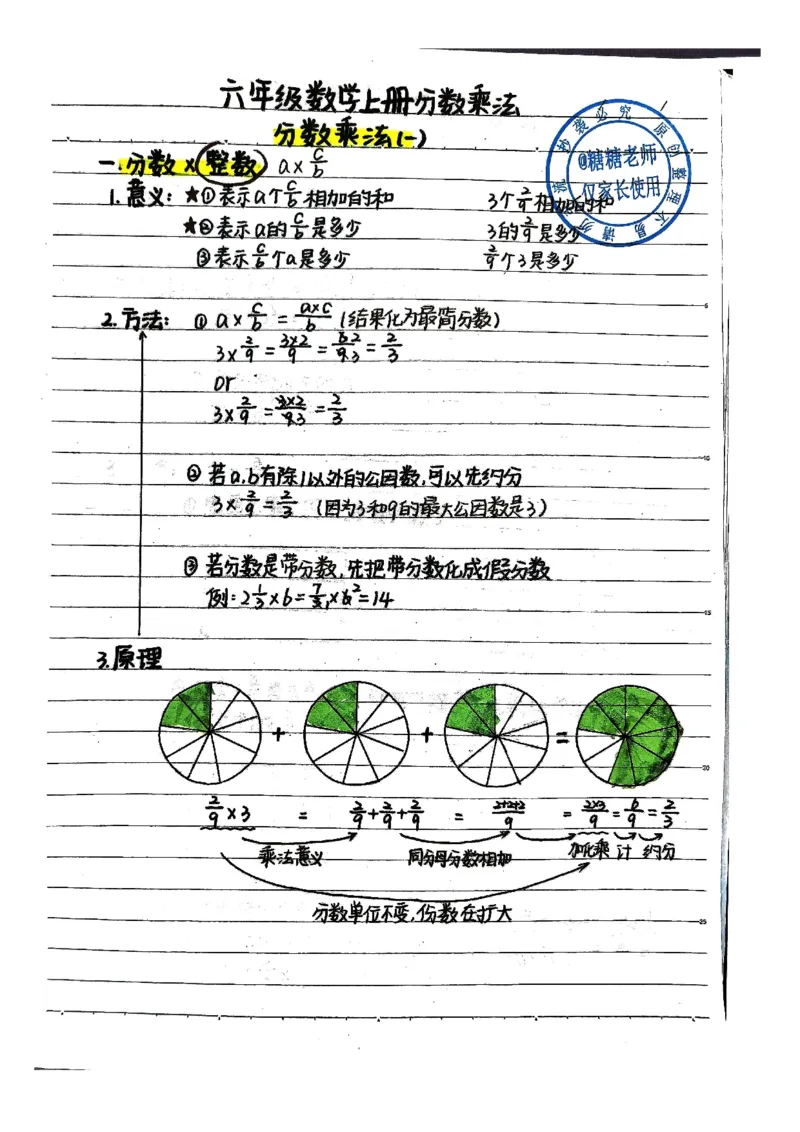 六年级数学上册分数乘法
分数乘法(一)
一.分数×整数 a×c/b
1.意义：★①表示a个c/b相加的和 3个2/9相加的和
★②表示a的c/b是多少 3的2/9是多少
③表示c/b个a是多少 2/9个3是多少
2.方法：①a×c/b=a×c/b(结果化为最简分数)
3×2/9=3×2/9=6 2/9 3=2/3
or
3×2/9=3×2/9 3=2/3
②若a.b有除1以外的公因数,可以先约分
3×2/9=2/3 (因为3和9的最大公因数是3)
③若分数是带分数,先把带分数化成假分数
例:2 1/3×6=7/3 1×6 2=14
3.原理
+ + =
2/9×3 = 2/9+2/9+2/9 = 2+2+2/9 = 2×3/9=6/9=2/3
乘法意义 同分母分数相加 加化乘 计 约分
分数单位不变,份数在扩大
@糖糖老师
仅家长使用
原创整理不易请勿 抄袭必究
5
10
15
20
25